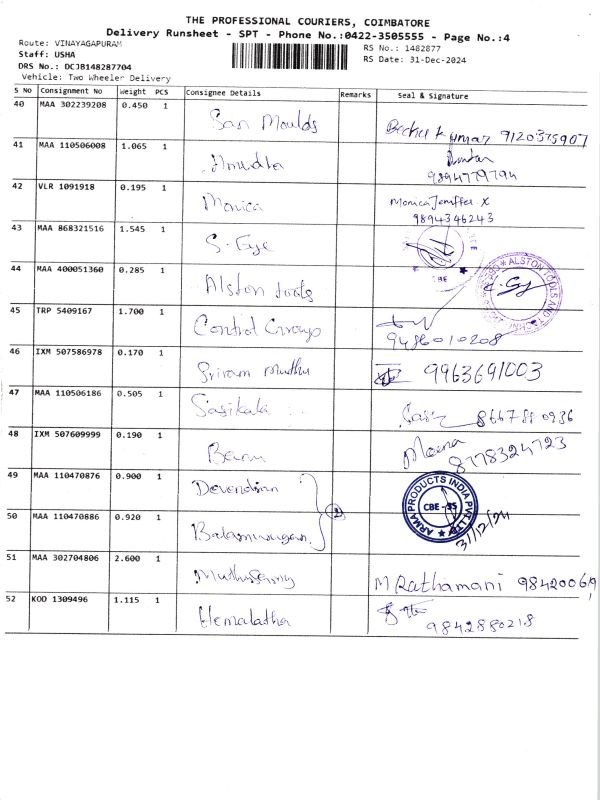 THE PROFESSIONAL COURIERS, COIMBATORE
Delivery Runsheet - SPT - Phone No.:0422-3505555 - Page No.:4
Route: VINAYAGAPURAM
RS No.: 1482877
Staff: USHA
RS Date: 31-Dec-2024
DRS No.: DCJB148287704
Vehicle: Two Wheeler Delivery
S No Consignment No Weight PCS Consignee Details Remarks Seal & Signature
40 MAA 302239208 0.450 1 San Moulds 9120375907
41 MAA 110506008 1.065 1
9894779794
42 VLR 1091918 0.195 1 Monica Monica Jeniffer X
9894346243
43 MAA 868321516 1.545 1 S. Eye
CBE
44 MAA 400051360 0.285 1 Alston tools ALSTON TOOLS AND
45 TRP 5409167 1.700 1 Control
9486010208
46 IXM 507586978 0.170 1 Sriram Muthu 9963691003
47 MAA 110506186 0.505 1 Sasikala
48 IXM 507609999 0.190 1 Meena
8778324723
49 MAA 110470876 0.900 1 Devendran
ARMA PRODUCTS INDIA PVT LTD
CBE - 35
50 MAA 110470886 0.920 1 Balamurugan 31/12/24
51 MAA 302704806 2.600 1 Muthusamy M Rathamani
52 KOD 1309496 1.115 1 Hemalatha
9842880218